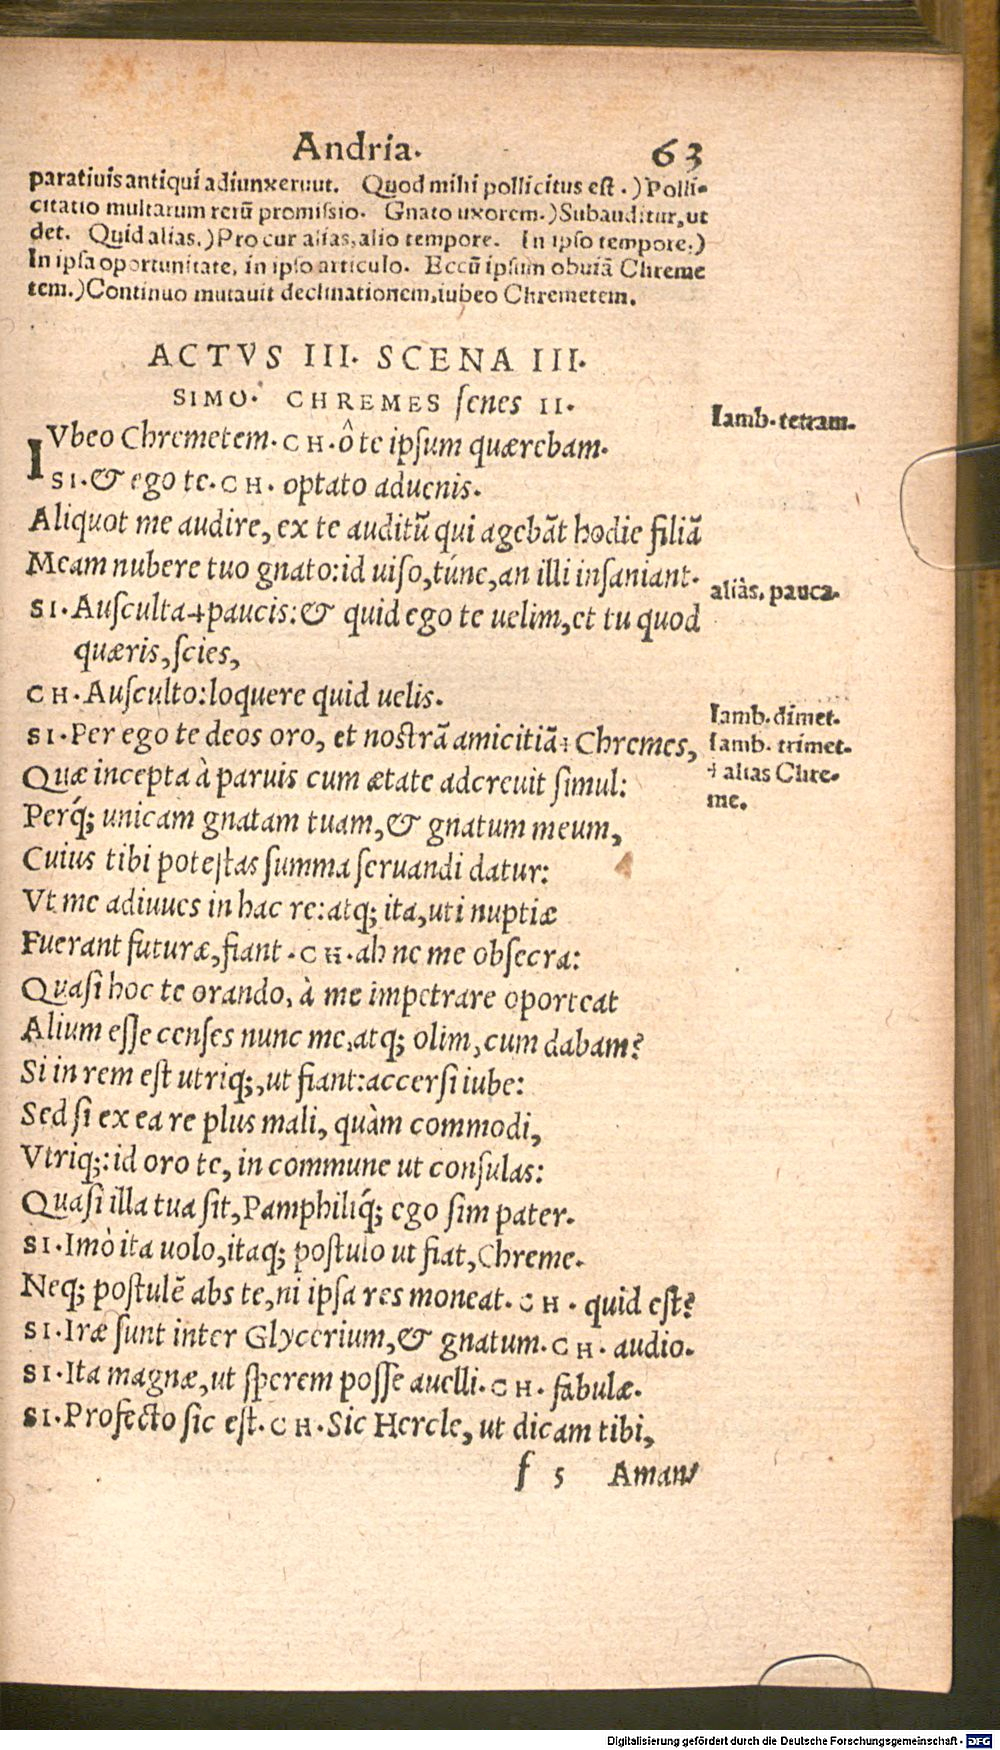 Andria. 63
paratiuis antiqui adiunxerunt. Quod mihi pollicitus est.) Polli-
citatio multarum rerū promissio. Gnato uxorem.) Subauditur, ut
det. Quid alias.) Pro cur alias, alio tempore. In ipso tempore.)
In ipsa oportunitate, in ipso articulo. Eccū ipsum obuiā Chreme
tem.) Continuo mutauit declinationem, iubeo Chremetem.
ACTVS III. SCENA III.
SIMO. CHREMES senes II.
Iamb. tetram.
IVbeo Chremetem. CH. ô te ipsum quærebam.
SI. & ego te. CH. optato aduenis.
Aliquot me audire, ex te auditū qui agebāt hodie filiā
Meam nubere tuo gnato: id uiso, túne, an illi insaniant.
aliàs, pauca.
SI. Ausculta ⁜ paucis: & quid ego te uelim, et tu quod
quæris, scies,
CH. Ausculto: loquere quid uelis.
Iamb. dimet.
SI. Per ego te deos oro, et nostrā amicitiā ⁜ Chremes,
Iamb. trimet.
⁜ alias Chre-
me.
Quæ incepta à paruis cum ætate adcreuit simul:
Perq́; unicam gnatam tuam, & gnatum meum,
Cuius tibi potestas summa seruandi datur:
Vt me adiuues in hac re: atq; ita, uti nuptiæ
Fuerant futuræ, fiant. CH. ah ne me obsecra:
Quasi hoc te orando, à me impetrare oporteat
Alium esse censes nunc me, atq; olim, cum dabam?
Si in rem est utriq;, ut fiant: accersi iube:
Sed si ex ea re plus mali, quàm commodi,
Vtriq;: id oro te, in commune ut consulas:
Quasi illa tua sit, Pamphiliq́; ego sim pater.
SI. Imò ita uolo, itaq; postulo ut fiat, Chreme.
Neq; postulē abs te, ni ipsa res moneat. CH. quid est?
SI. Iræ sunt inter Glycerium, & gnatum. CH. audio.
SI. Ita magnæ, ut sperem posse auelli. CH. fabulæ.
SI. Profecto sic est. CH. Sic Hercle, ut dicam tibi,
f 5 Aman-
Digitalisierung gefördert durch die Deutsche Forschungsgemeinschaft - DFG